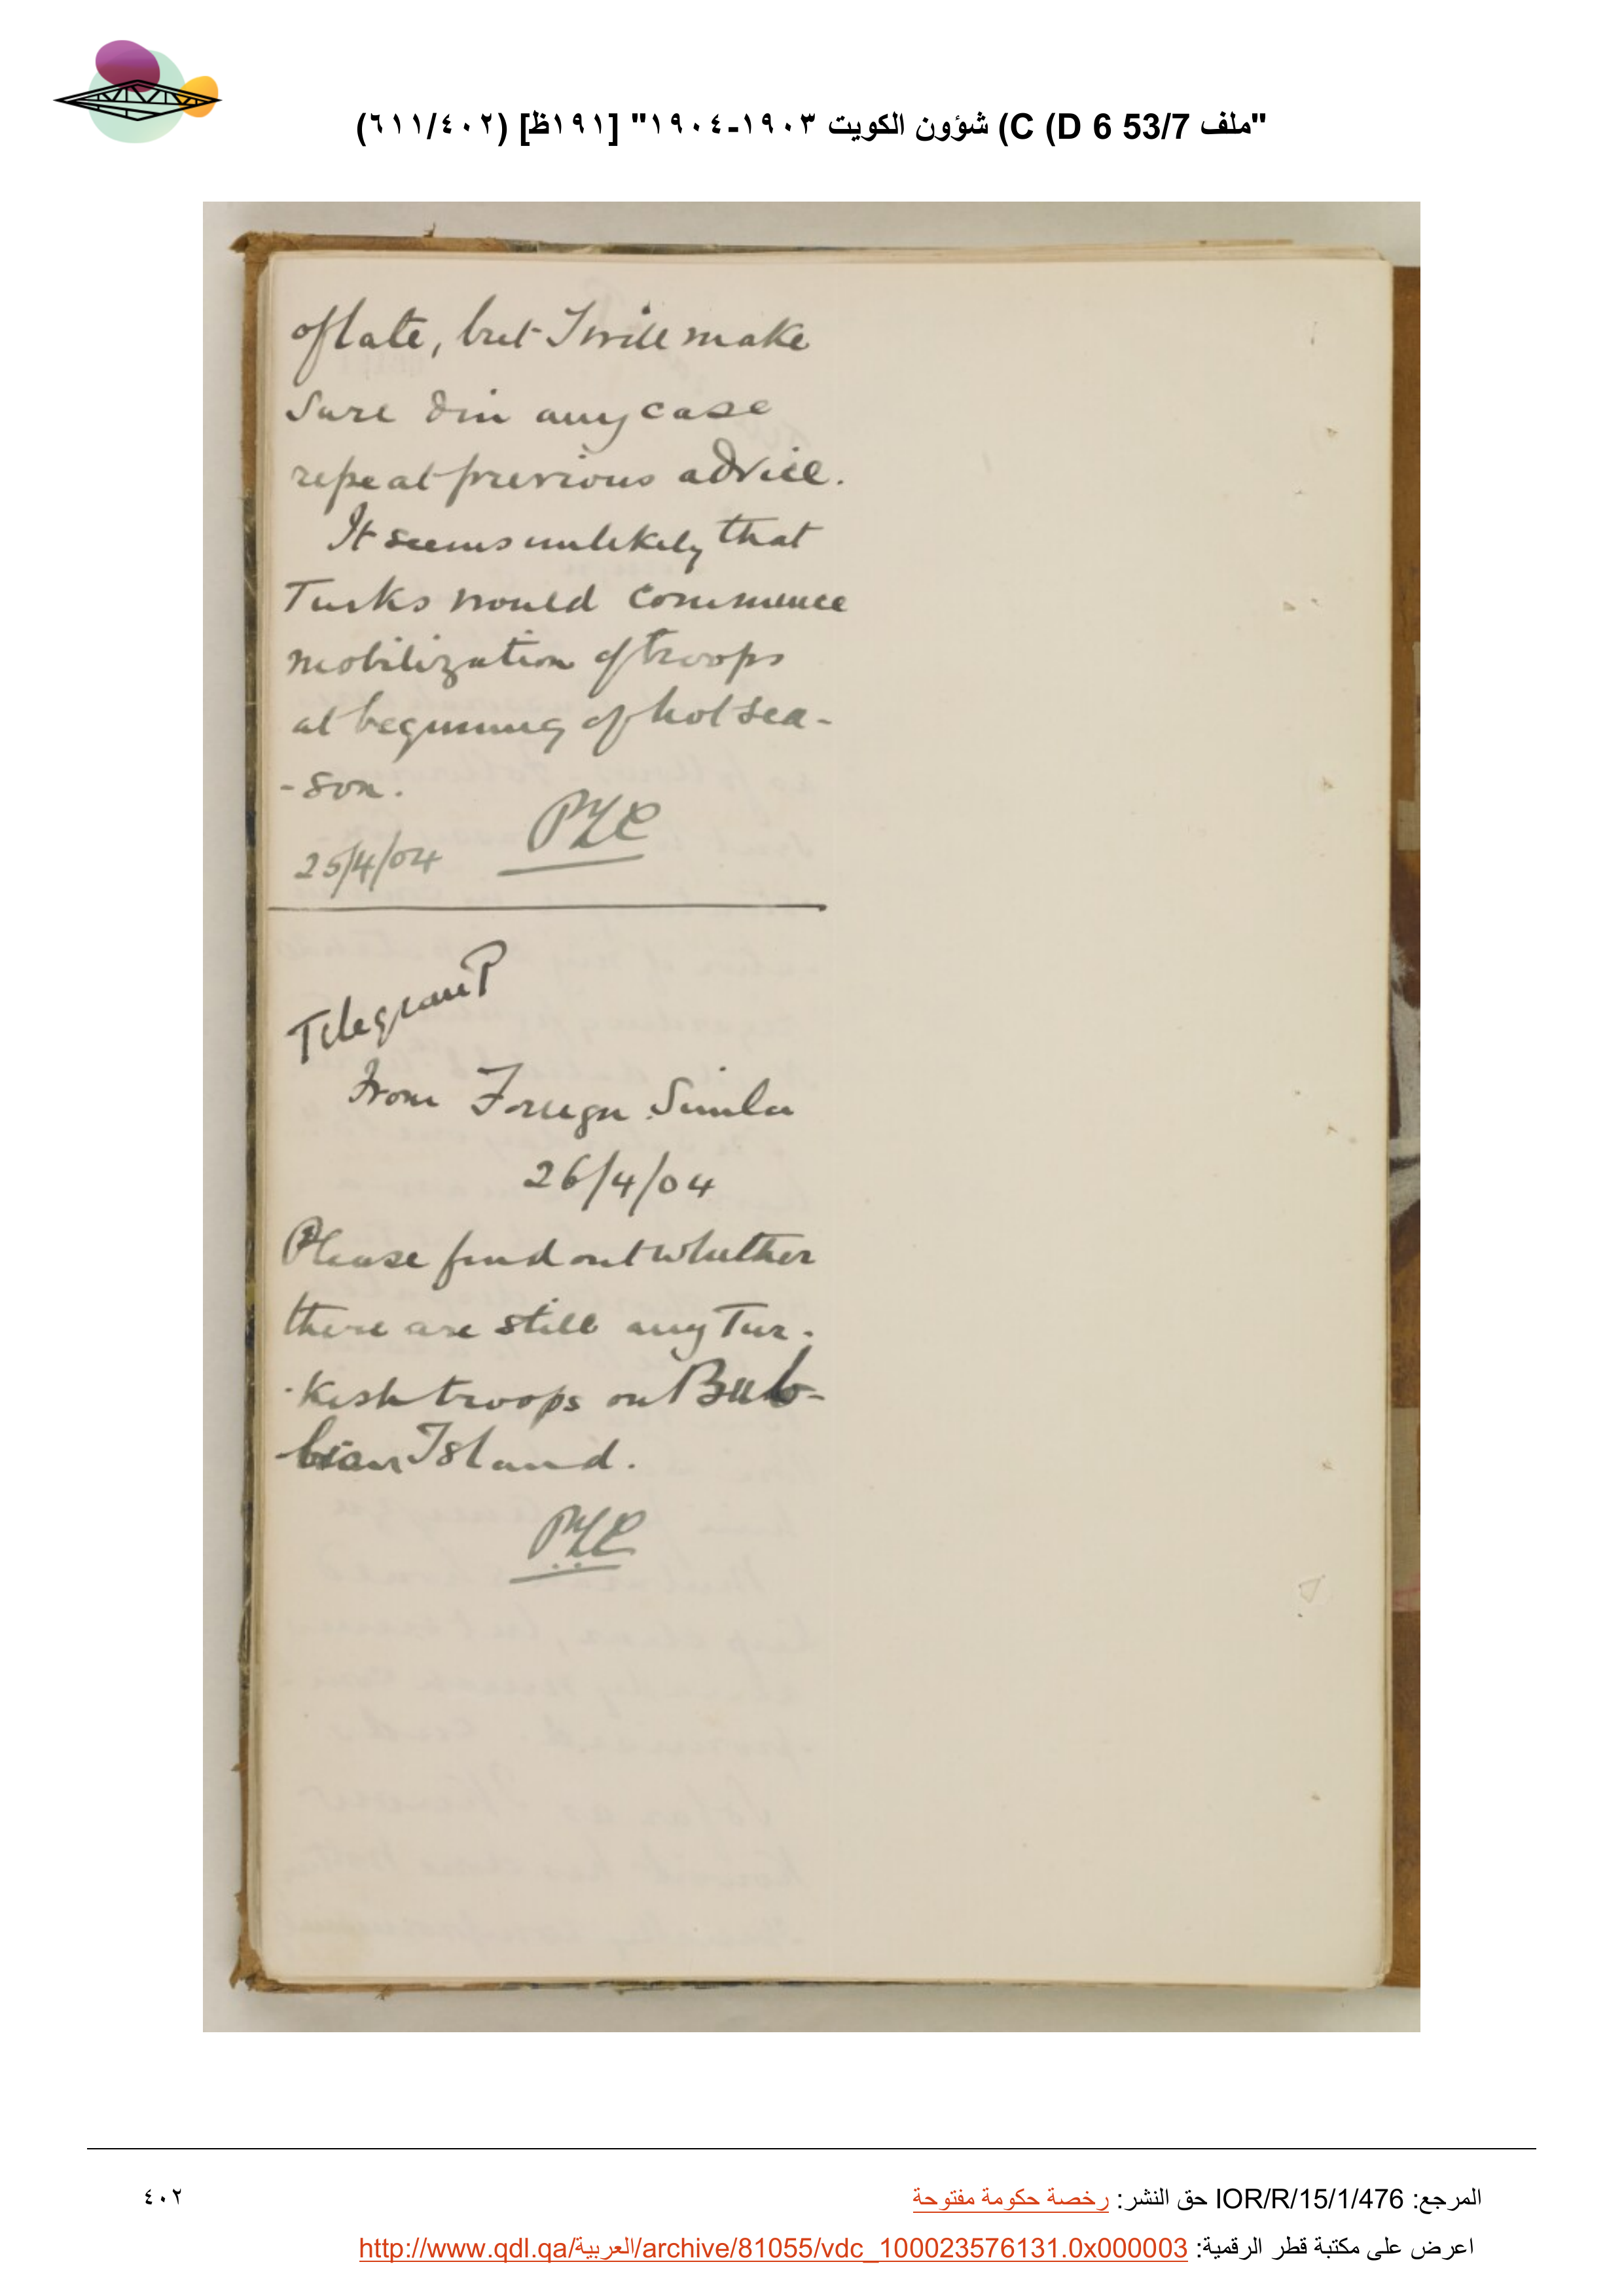 "ملف 53/7 D 6) C) شؤون الكويت ١٩٠٣-١٩٠٤" [١٩١ظ] (٦١١/٤٠٢)
of late, but I will make
sure & in any case
repeat previous advice.
It seems unlikely that
Turks would commence
mobilization of troops
at beginning of hot sea-
-son.
PZC
25/4/04
Telegram P
From Foreign Simla
26/4/04
Please find out whether
there are still any Tur-
-kish troops on Bub-
-bian Island.
PZC
المرجع: IOR/R/15/1/476 حق النشر: رخصة حكومة مفتوحة
٤٠٢
اعرض على مكتبة قطر الرقمية: http://www.qdl.qa/العربية/archive/81055/vdc_100023576131.0x000003